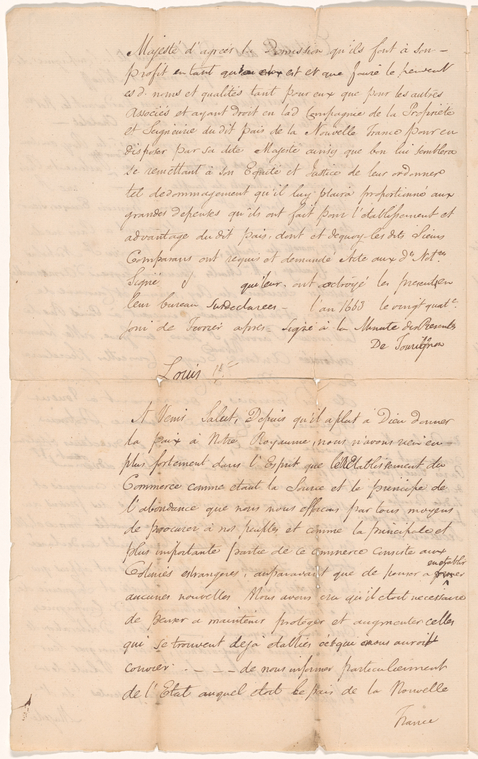 Majesté d'agréer la Demission qu'ils font à son
profit en tant qu'en eux est et que faire le peuvent
esd. noms et qualités tant pour eux que pour les autres
associés et ayant Droit en lad. Compagnie de la Proprieté
et Seigneurie du dit païs de la Nouvelle France pour en
disposer par sa dite Majesté ainsy que bon lui semblera
se remettant à son Equité et Justice de leur ordonner
tel dedommagement qu'il luy plaira proportionné aux
grandes depenses qu'ils ont fait pour l'établissement et
advantage du dit païs, dont et dequoy les dits Sieurs
Comparans ont requis et demandé Acte aux ds. Notres
Signé qui leur ont octroyé les presentes en
leur bureau susdeclarées - l'an 1663 le vingt quatre.
jour de Fevrier après - Signé à la Minute des Presentes
De
Louis
A Venir Salut, Depuis qu'il a plut à Dieu donner
la paix à Notre Royaume, nous n'avons rien eu
plus fortement dans l'Esprit que le Retablissement du
Commerce comme etant la Source et le principe de
l'abondance que nous nous efforcons par tous moyens
de procurer à nos peuples et comme la principale et
plus importante partie de ce commerce consiste aux
Colonies etrangeres, auparavant que de penser a en etablir
aucunes nouvelles Nous avons cru qu'il etoit necessaire
de penser a maintenir proteger et augmenter celles
qui se trouvent deja établies ce qui nous auroit
convier - - - - de nous informer particulierement
de l'Etat auquel etoit le païs de la Nouvelle
France